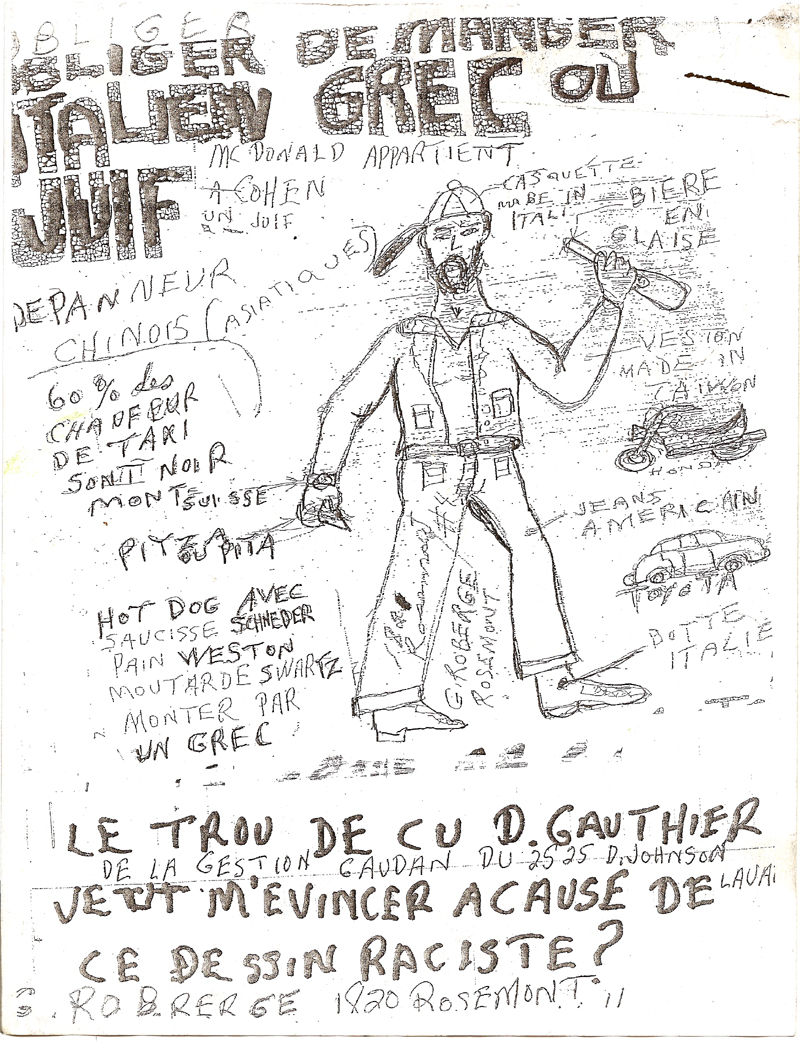 OBLIGER
OBLIGER DE MANGER
ITALIEN GREC OU
JUIF
MC DONALD APPARTIENT
A COHEN
UN JUIF
CASQUETTE
MADE IN
ITALI
BIERE
EN
GLAISE
DEPANNEUR
CHINOIS (ASIATIQUES)
60 % des
CHAUFEUR
DE TAXI
SONT NOIR
MONT SUISSE
PITZA
OU PITA
VESTON
MADE IN
TAIWON
HONDA
JEANS
AMERICAIN
TOYOTA
BOTTE
ITALIE
HOT DOG AVEC
SAUCISSE SCHNEDER
PAIN WESTON
MOUTARDE SWARTZ
MONTER PAR
UN GREC
G ROBERGE
ROSEMONT
LE TROU DE CU D. GAUTHIER
DE LA GESTION GAUDAN DU 2525 D. JOHNSON
LAVAL
VEUT M'EVINCER A CAUSE DE
CE DESSIN RACISTE?
ROBRERGE 1820 ROSEMONT. 11